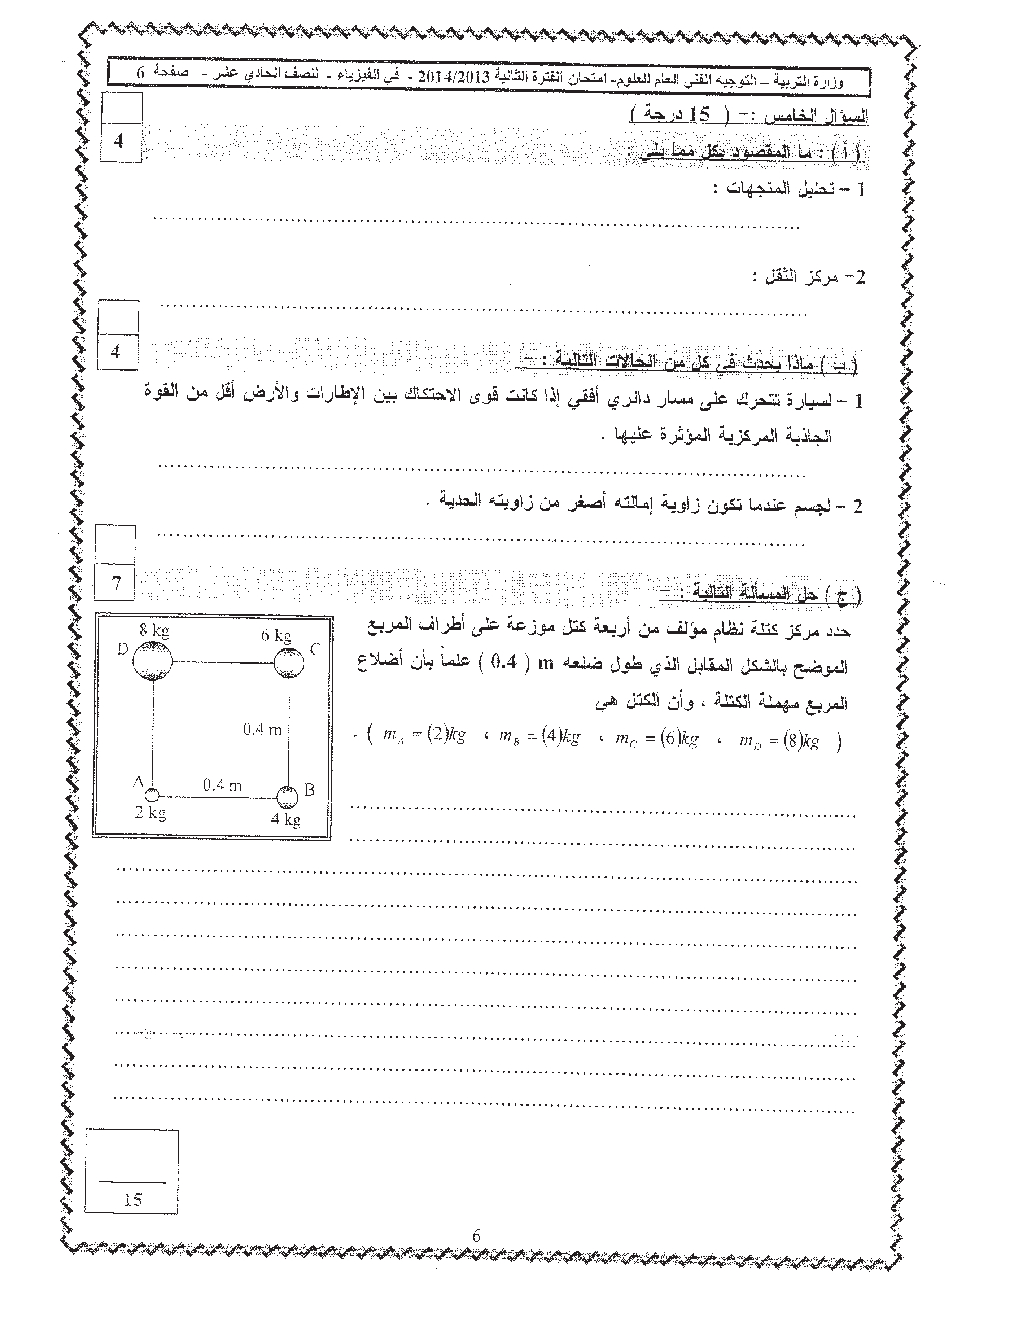 وزارة التربية – التوجيه الفني العام للعلوم- امتحان الفترة الثانية 2014/2013 - في الفيزياء - للصف الحادي عشر - صفحة 6
السؤال الخامس :- ( 15 درجة )
4
( أ ) : ما المقصود بكل مما يلي :
1 – تحليل المتجهات :
2- مركز الثقل :
4
( ب ) ماذا يحدث في كل من الحالات التالية : –
1 – لسيارة تتحرك على مسار دائري أفقي إذا كانت قوى الاحتكاك بين الإطارات والأرض أقل من القوة
الجاذبة المركزية المؤثرة عليها .
2 – لجسم عندما تكون زاوية إمالته أصغر من زاويته الحدية .
7
( ج ) حل المسألة التالية : –
حدد مركز كتلة نظام مؤلف من أربعة كتل موزعة على أطراف المربع
الموضح بالشكل المقابل الذي طول ضلعه m ( 0.4 ) علماً بأن أضلاع
المربع مهملة الكتلة ، وأن الكتل هي
( m_A = (2)kg ، m_B = (4)kg ، m_C = (6)kg ، m_D = (8)kg ) .
8 kg
6 kg
D
C
0.4 m
A
0.4 m
B
2 kg
4 kg
15
6